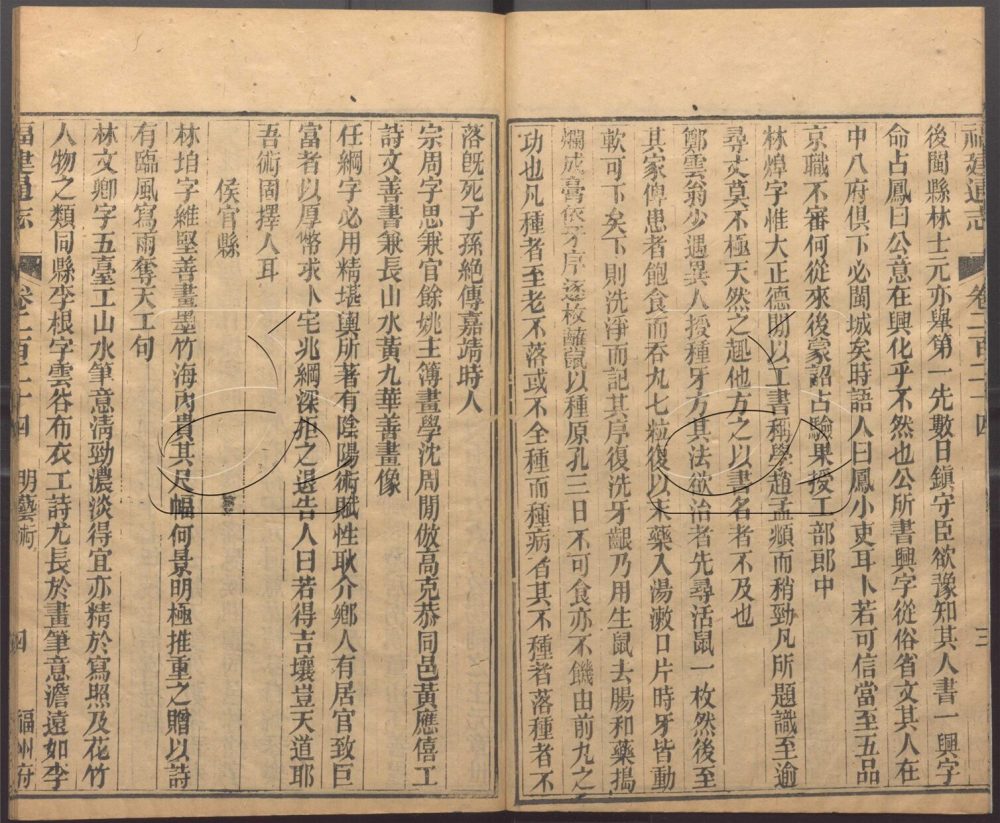 福建通志 卷二百二十四 三
後閩縣林士元亦舉第一先數日鎮守臣欲豫知其人書一興字
命占鳳曰公意在興化乎不然也公所書興字從俗省文其人在
中八府俱下必閩城矣時語人曰鳳小吏耳卜若可信當至五品
京職不審何從來後蒙詔占驗果授工部郎中
林焞字惟大正德間以工書稱學趙孟頫而稍勁凡所題識至逾
尋丈莫不極天然之趣他方之以書名者不及也
鄭雲翁少遇異人授種牙方其法欲治者先尋活鼠一枚然後至
其家俾患者飽食而吞九七粒復以末藥入湯漱口片時牙皆動
軟可下矣下則洗淨而記其序復洗牙齦乃用生鼠去腸和藥搗
爛成膏依牙序逐枚蘸鼠以種原孔三日不可食亦不饑由前九之
功也凡種者至老不落或不全種而種病者其不種者落種者不
落旣死子孫絕傳嘉靖時人
宗周字思兼官餘姚主簿畫學沈周閒倣高克恭同邑黃應僖工
詩文善書兼長山水黃九華善畫像
任綱字必用精堪輿所著有陰陽術賦性耿介鄉人有居官致巨
富者以厚幣求卜宅兆綱深拒之退告人曰若得吉壤豈天道耶
吾術固擇人耳
侯官縣
林垍字維堅善畫墨竹海內貴其尺幅何景明極推重之贈以詩
有臨風寫雨奪天工句
林文卿字五臺工山水筆意清勁濃淡得宜亦精於寫照及花竹
人物之類同縣李根字雲谷布衣工詩尤長於畫筆意澹遠如李
福建通志 卷二百二十四 明藝術 四 福州府